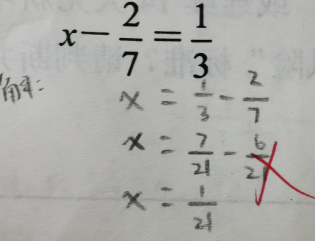 x - 2/7 = 1/3
解:
x = 1/3 - 2/7
x = 7/21 - 6/21
x = 1/21